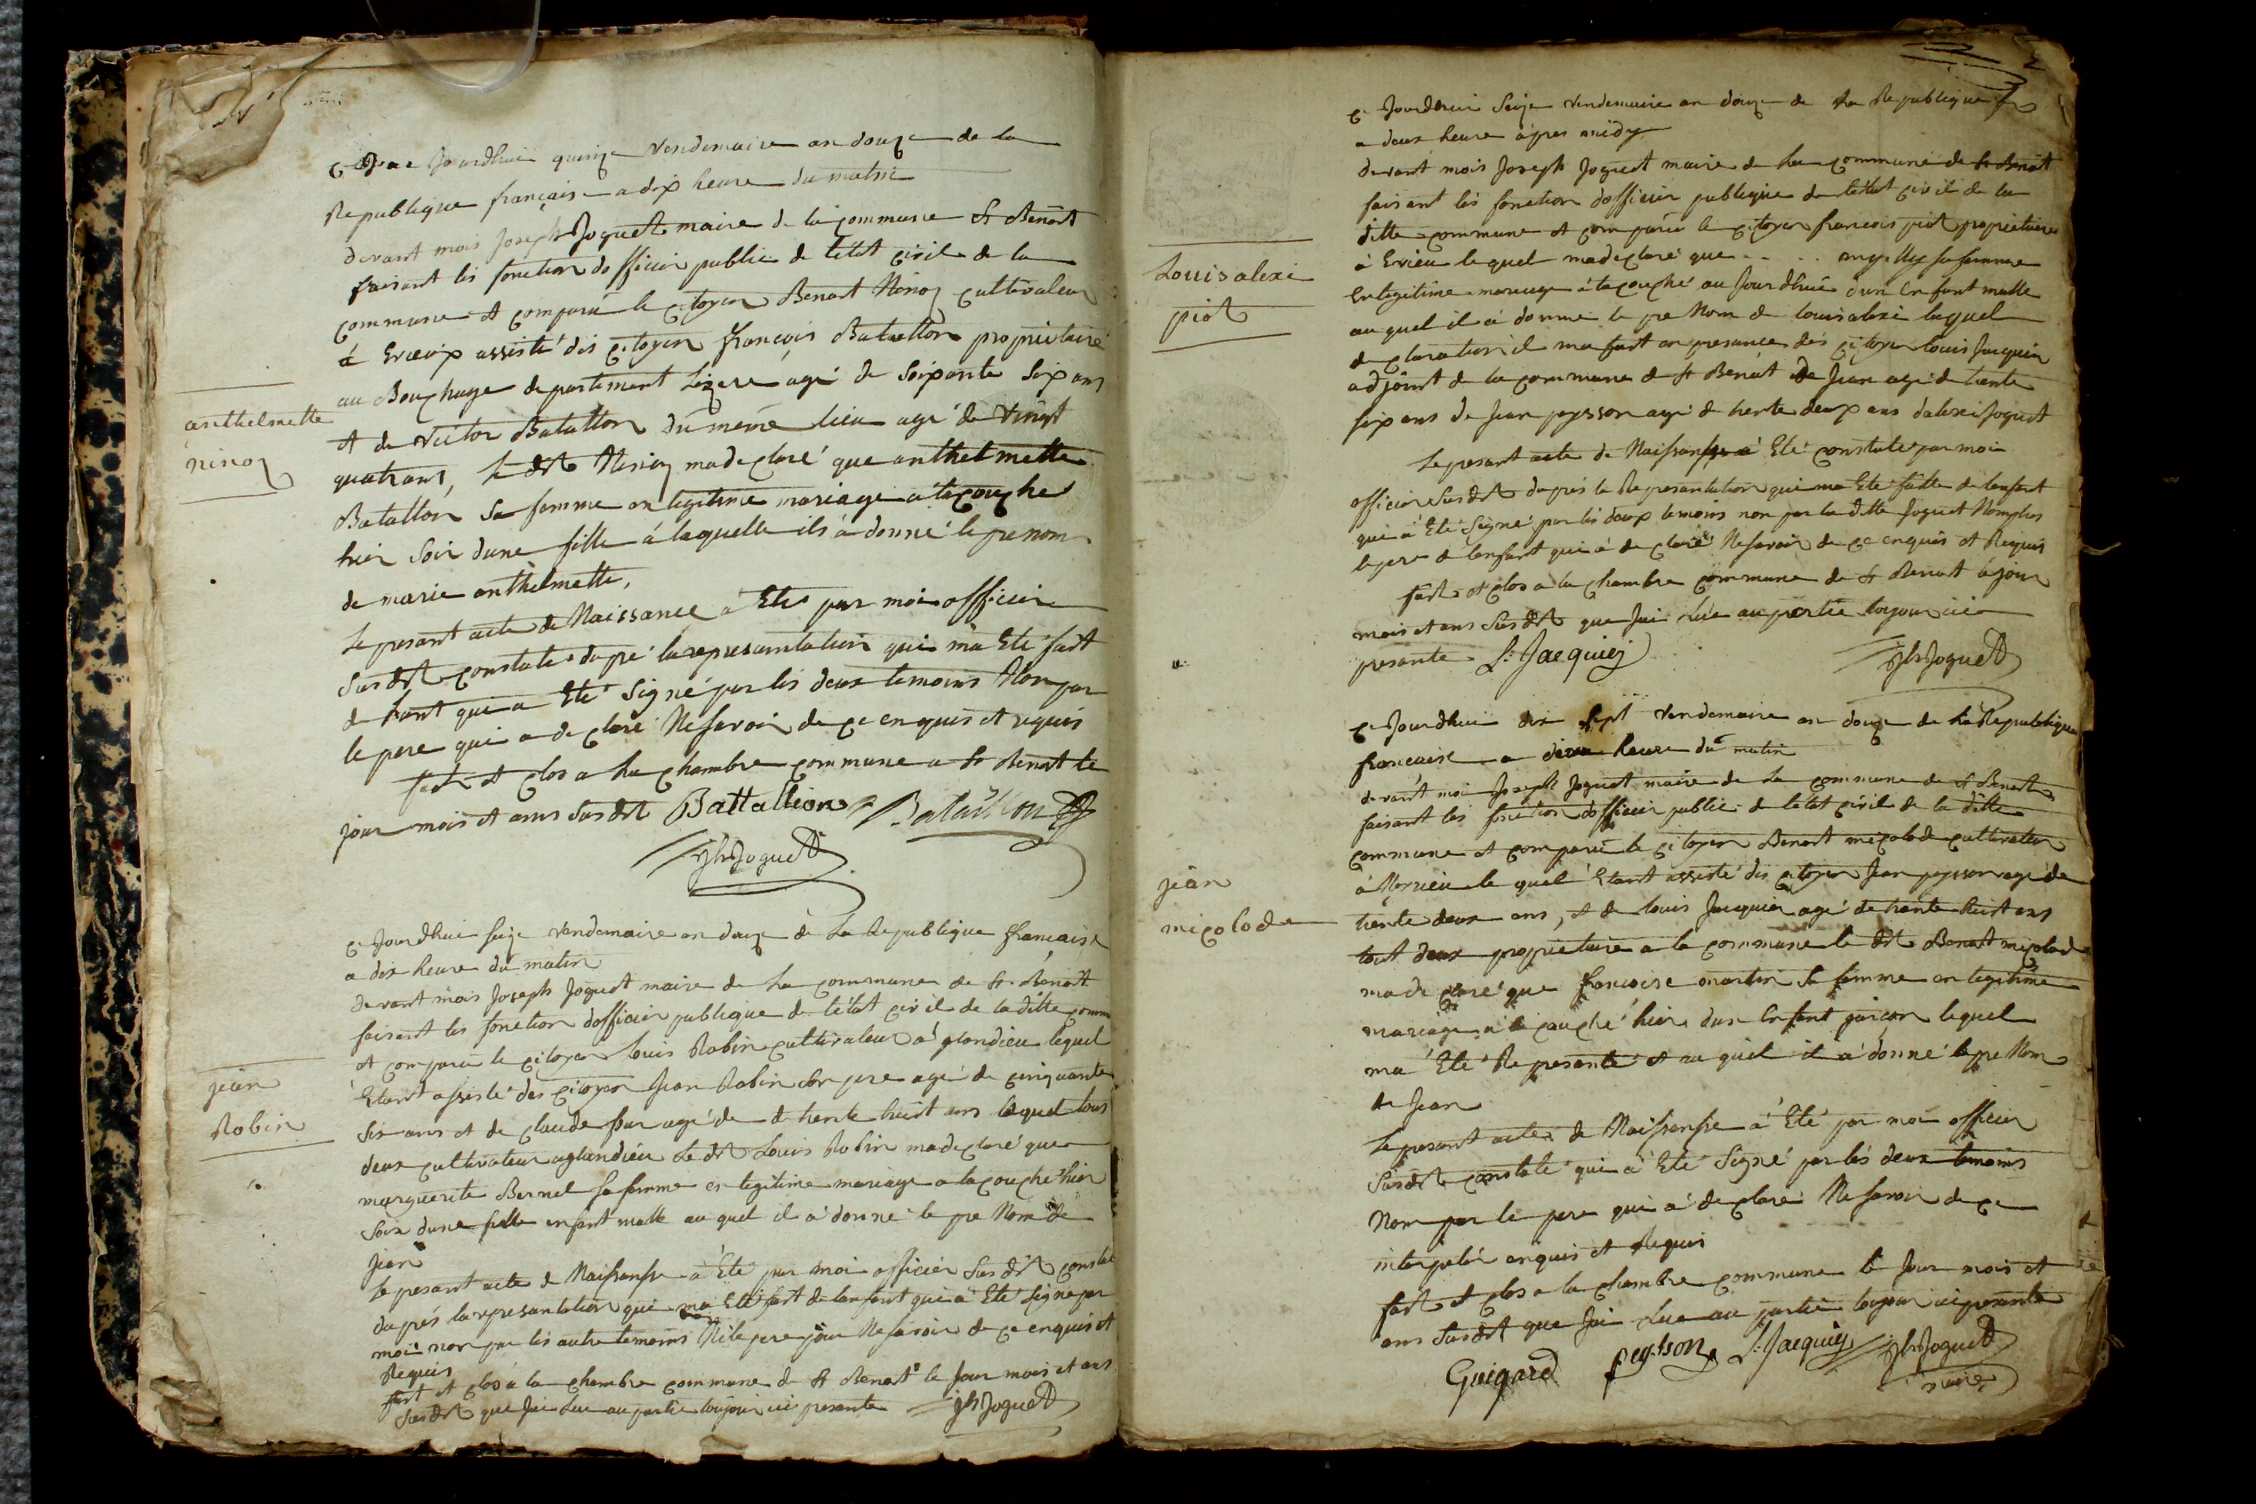 anthelmette
ninoz
Ce Jourdhuit quinze Vendemaire an douze de la
Republique française a dix heure du matin
devant mois Joseph Joguet maire de la commune St Benoit
faisant les fonction dofficier public de letat civil de la
commune et comparu le citoyen Benoit Ninoz cultivateur
à Evieux assisté des citoyen françois Batallion propriétaire
au Bouchage departement Lizere agé de soixante six ans
et de Victor Batallon du même lieu agé de vingt
quatr ans, le dit Ninoz ma declaré que anthelmette
Batallon sa femme en legitime mariage a lacouche
hier soir dune fille á laquelle ils a donné le prenom
de marie anthelmette,
le present acte de Naissance a Eté par moi officier
susdit constaté dapré la representation qui má Eté fait
de lant qui a Eté Signé par les deux temoins Non par
le pere qui a declaré Ne savoir de ce enquis et requis
fait et clos a La chambre commune a St Benoit le
jour mois et ans susdit Battallion Batallion
Jh Joguet
jean
Robin
Ce Jourdhui seize vendemaire an douze de La Republique francaise
a dix heure du matin
devant mois Joseph Joguet maire de La commune de St Benoit
faisant les fonction dofficier publique de létat civil de la ditte comm
et comparu le citoyen Louis Robin cultivateur a glandieu lequel
Etant assisté des citoyen Jean Robin son pere agé de cinquante
six ans et de claude agé de trente huit ans lequel tous
deux cultivateur a glandieu le dit Louis Robin ma declaré que
marguerite Bernel sa femme en legitime mariage a lacouche hier
soir dune fille enfant malle au quel il a donné le pre Nom de
jean
le present acte de Naissansse a Eté par moi officier susdit constat
daprés la representation qui ma Eté fait de lenfant qui a Eté signe par
moi non par les autre temoins Ni le pere pour Ne savoir de ce enquis et
Requis
fait et clos a la chambre commune de St Benoit le jour mois et ans
susdit que jai Lue au partie toujour ici presante Jh Joguet
Louis alexi
piot
Ce Jourdhui seize vendemaire an douze de La Republique
a deux heure àpres midy
devant mois Joseph Joguet maire de La commune de St Benoit
faisant les fonction dofficier publique de létat civil de la
ditte commune et comparu le citoyen francois piot propriétaire
à Evieu lequel ma declaré que . . . . sa femme
en legitime mariage a lacouché au Jourdhui dun Enfant malle
au quel il a donne le pre Nom de louis alexi laquel
declaration il ma fait en presance des citoyen louis Jacquier
adjoint de la commune de St Benoit de Jean agé de trente
six ans de Jean peysson agé de trente deux ans dalexi Joguet
le presant acte de Naissansse a Eté constaté par moi
officier susdit daprés la Representation qui ma Eté faitte de lenfant
qui à Eté Signé par les deux temoins non par la ditte Joguet Nomplus
le pere de lenfant qui a declaré Ne savoir de ce enquis et Requis
fait et clos a la chambre commune de St Benoit le jour
mois et ans susdit que jai Lue au partie toujour ici
presante L: Jacquier Jh Joguet
jean
micolode
Ce Jourdhui dix sept vendemaire an douze de La Republique
francaise a heure du matin
devant moi Joseph Joguet maire de La commune de St Benoit
faisant les fonction dofficier public de letat civil de la ditte
commune et comparu le citoyen Benoit micolode cultivateur
à lequel Etant assisté des citoyen Jean peysson agé de
trente deux ans, et de louis Jacquier agé de trente huit ans
tout deux propriétaire a la commune le dit Benoit micolode
ma declaré que francoise martin sa femme en legitime
mariage a lacouché hier dun Enfant garçon lequel
má Eté Representé et au quel il a donné le pre Nom
de Jean
le present acte de Naissansse a Eté par moi officier
susdit constaté qui à Eté Signé par les deux temoins
Nom par le pere qui a declaré Ne savoir de ce
interpelé enquis et Requis
fait et clos a la chambre commune le jour mois et
ans susdit que Jai Lue au partie toujour ici presante
Guigard peysson L: Jacquier Jh Joguet
maire